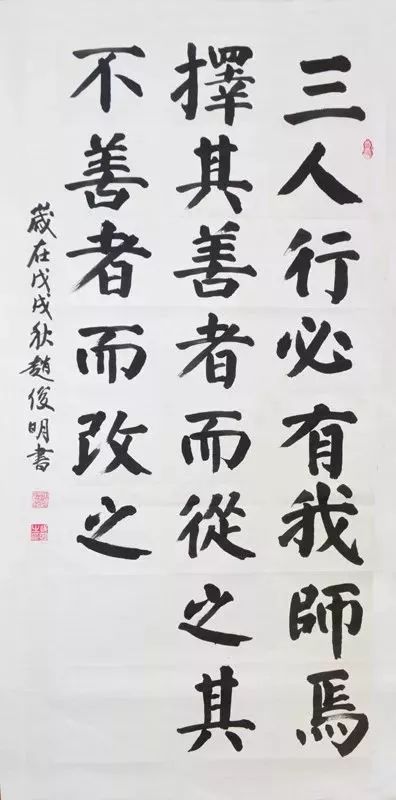 三人行必有我師焉
擇其善者而從之其
不善者而改之
歲在戊戌秋趙俊明書